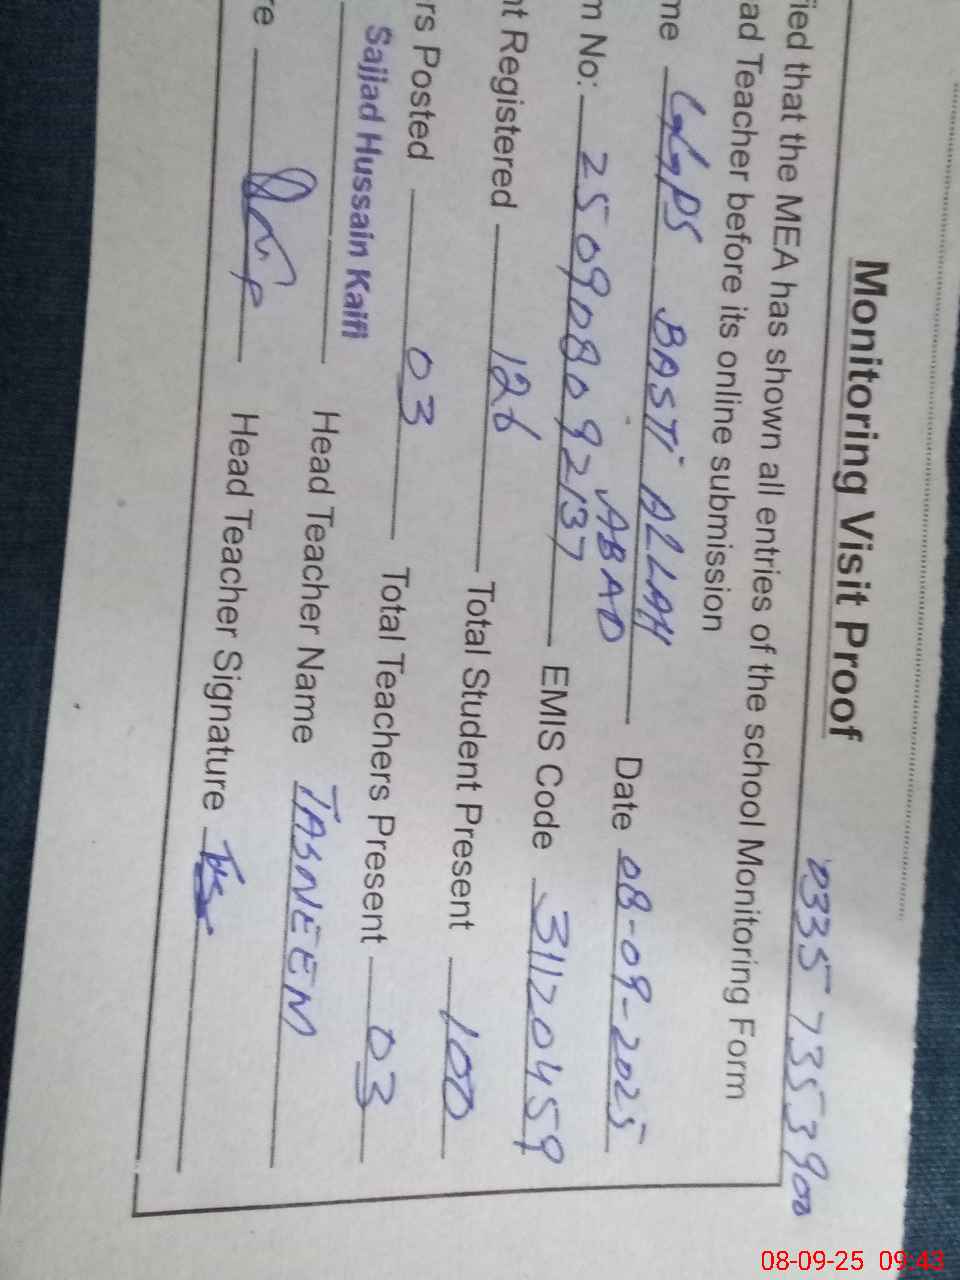 Monitoring Visit Proof
0335 7353900
fied that the MEA has shown all entries of the school Monitoring Form
ad Teacher before its online submission
me GGPS BASTI ALLAH ABAD Date 08-09-2025
m No: 250908092137 EMIS Code 31120459
nt Registered 126 Total Student Present 100
rs Posted 03 Total Teachers Present 03
Sajjad Hussain Kaifi Head Teacher Name TASNEEM
re Head Teacher Signature
08-09-25 09:43